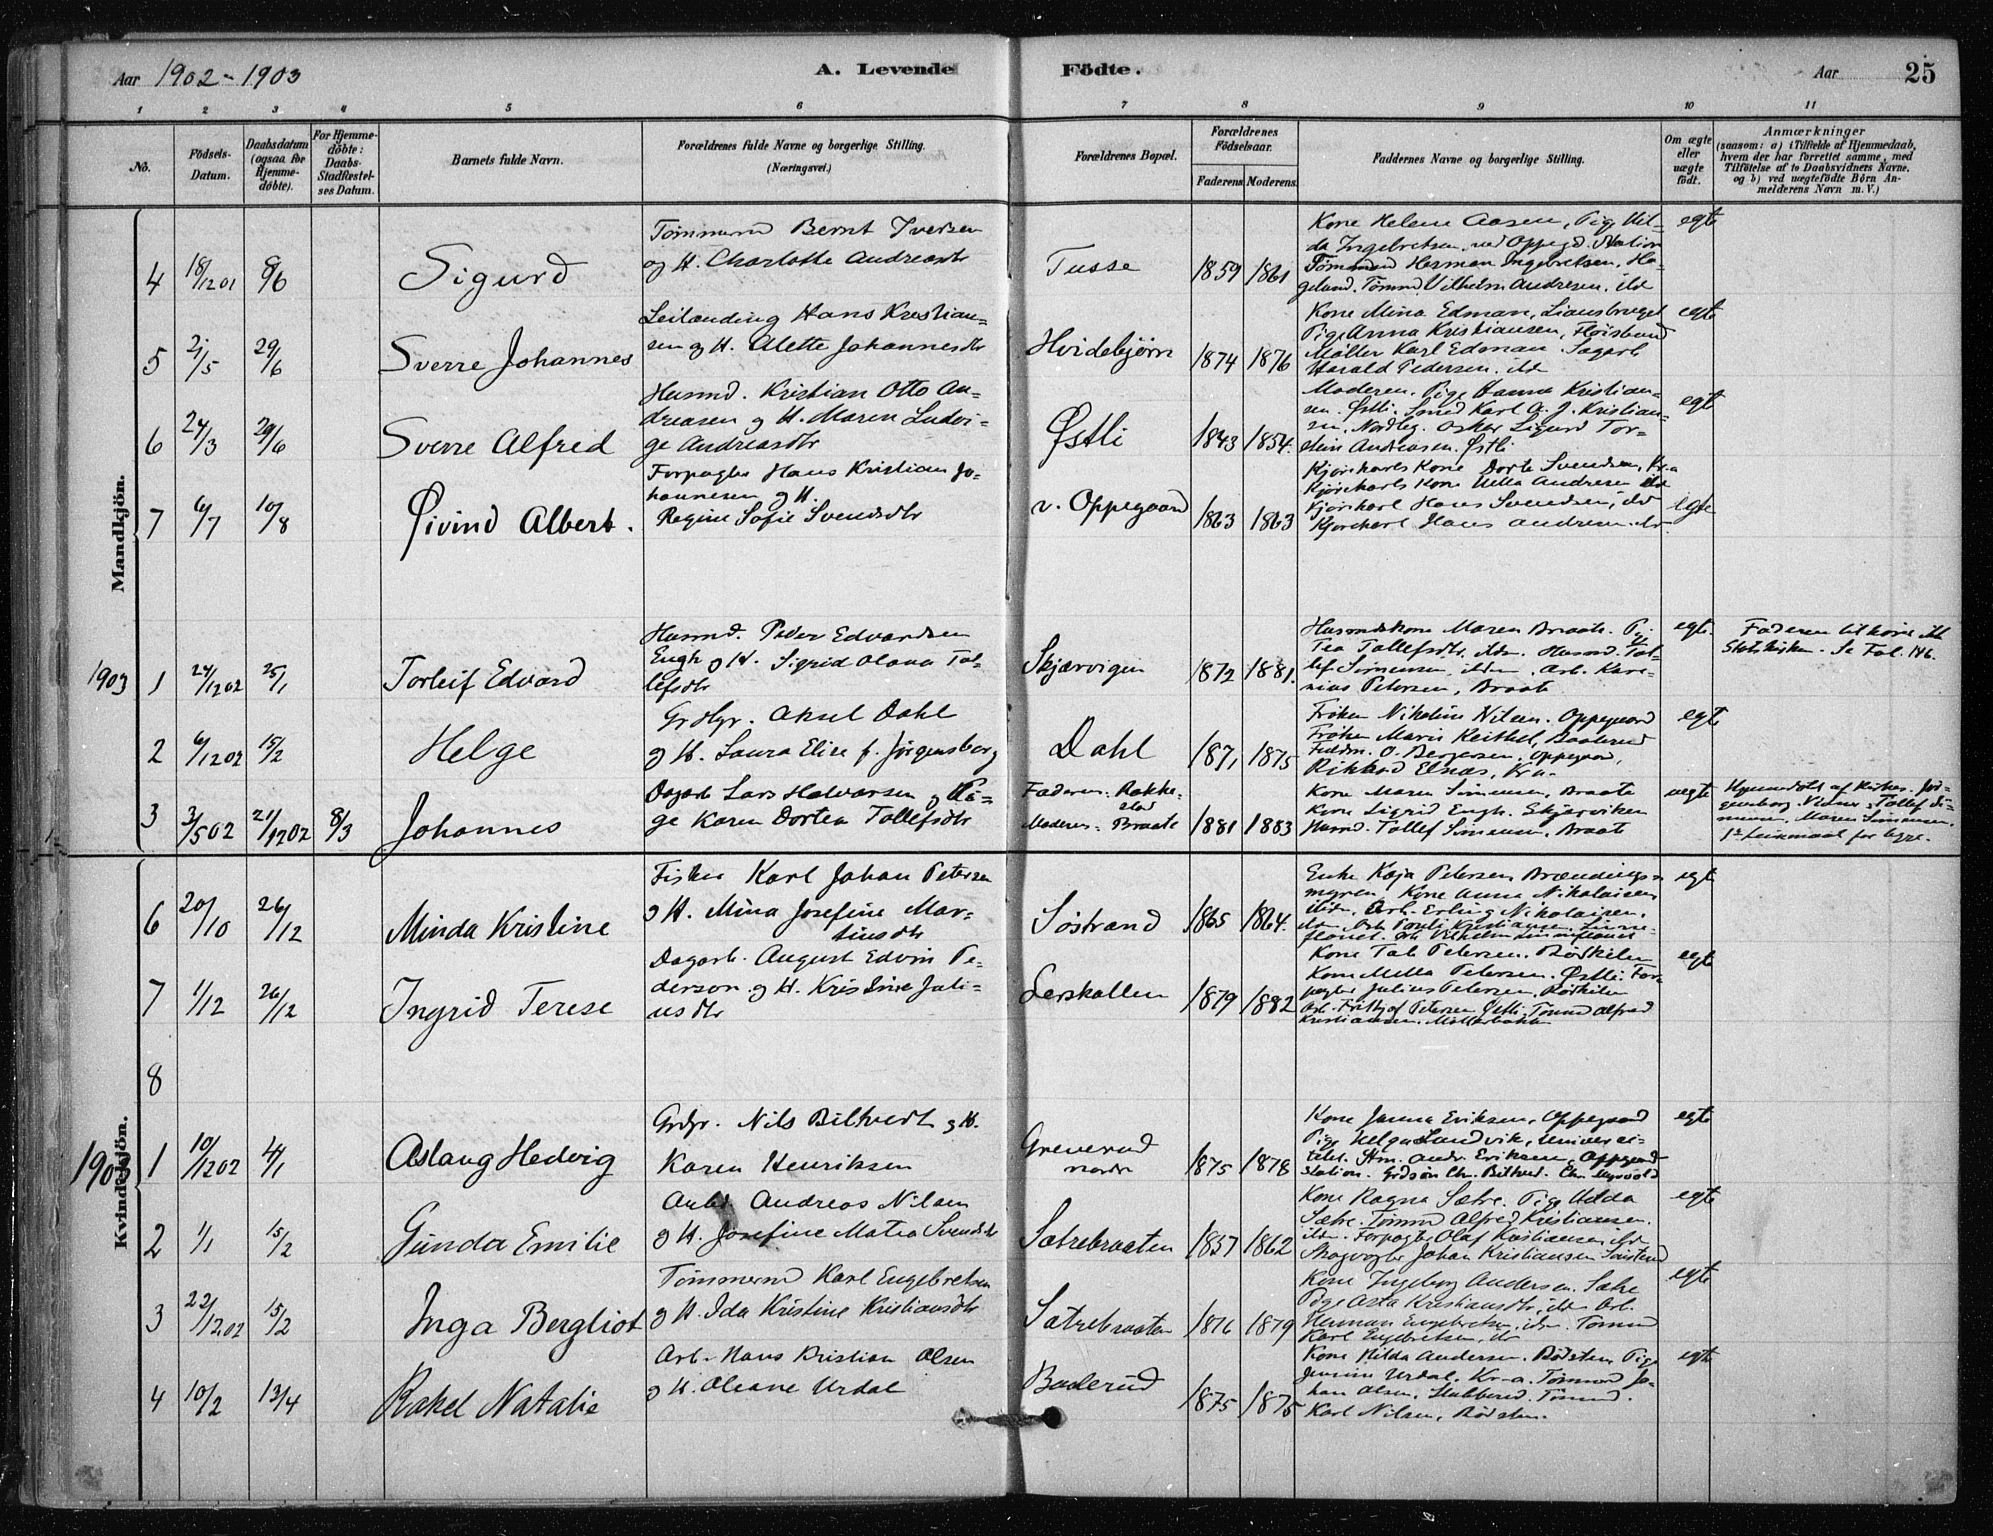 Aar 1902-1903
A. Levende Födte.
Aar
25
1 2 3 4 5 6 7 8 9 10 11
No.
Födsels-Datum.
Daabsdatum (ogsaa for Hjemme-döbte).
For Hjemme-döbte: Daabs-Stadfæstel-ses Datum.
Barnets fulde Navn.
Forældrenes fulde Navne og borgerlige Stilling.
(Næringsvei.)
Forældrenes Bopæl.
Forældrenes Födselsaar.
Faderens Moderens
Faddernes Navne og borgerlige Stilling.
Om ægte eller uægte födt.
Anmærkninger
(saasom: a) i Tilfælde af Hjemmedaab,
hvem der har forrettet samme, med
Tilföielse af to Daabsvidners Navne,
og b) ved uægtefödte Börn An-
melderens Navn m. V.)
Mandkjön.
4 18/12 01 8/6 Sigurd
Tømmermd Bernt Iversen
og H. Charlotte Andreasdtr
Tusse 1859 1861
Kone Helene Aasen, Pige Hil-
da Ingebretsen, ved Oppegd. Station
Tømmermd Herman Ingebretsen, Ha-
gelund. Tømmd Vilhelm Andresen, ibd
egte
5 2/5 29/6 Sverre Johannes
Leilænding Hans Kristian-
sen og H. Alette Johannesdtr
Hvidebjørn 1874 1876
Kone Mina Edman, Liansbruget
Pige Anna Kristiansen, Fløisbund
Møller Karl Edman Sagarb
Harald Pedersen. ibd
egte
6 24/3 29/6 Sverre Alfred
Husmd. Kristian Otto An-
dreasen og H. Maren Ludvi-
ge Andreasdtr
Østli 1843 1854.
Moderen. Pige Hanna Kristian-
sen. Østli. Smed Karl A. J. Kristian-
sen, Oskar Sigurd Tor-
stein Andreasen. Østli
egte
7 6/7 10/8 Øivind Albert.
Forpagter Hans Kristian Jo-
hannesen og H.
Regine Sofie Svendsdtr
v. Oppegaard 1863 1863
Kjørekarls Kone Dorte Svendsen, Kr.a
Kjørekarls Kone Andresen ibd
Kjørekarl Hans Svendsen, ibd
Kjørekarl Hans Andresen. ibd.
egte
1903
1 24/12 02 25/1 Torleif Edvard
Husmd. Peder Edvardsen
Engh og H. Sigrid Olava Tol-
lefsdtr
Skjærvigen 1872 1881.
Husmdskone Maren Braate. Pige
Tea Tollefsdtr, ibdm. Husmd Tol-
lef Simensen, ibdm. Arb. Kare-
nius Petersen, Braate
egte.
Faderen tilhører ikke
Statskirken. Se Fol. 146.
2 6/12 02 15/2 Helge
Grdbr. Aksel Dahl
og H. Laura Elise f. Jørgensborg
Dahl 1871, 1875
Frøken Nikoline Nilsen. Oppegaard
Frøken Marie Keithel, Baalerud
Fuldm. O. Bergersen, Oppegaard,
Rikkard Elnæs, Kra.
egte
3 3/5 02 21/12 02 8/3 Johannes
Dagarb Lars Halvorsen og Pi-
ge Karen Dortea Tollefsdtr
Faderen. Rakke-
stad
Moderen: Braate 1881 1883
Kone Maren Simensen, Braate
Kone Sigrid Engh. Skjærviken
Husmd. Tollef Simensen, Braate
uegte
Hjemmedøbt af Jør-
genborg. Vidner: Tollef Si-
mensen, Maren Simensen.
1ste Leiermaal for begge.
Kvindekjön.
6 20/10 26/12 Minda Kristine
Fisker Karl Johan Petersen
og H. Mina Josefine Mar-
tinsdtr
Søstrand 1865 1864.
Enke Kaja Petersen Brændings-
myren, Kone Anna Nikolaisen
ibdm, Arb. Erling Nikolaisen,
ibd. Arb Kristiansen,
Arb Vilhelm
egte
7 1/12 26/12 Ingrid Terese
Dagarb. August Edvin Pe-
derson og H. Kristine Juli-
usdtr
Lerskallen 1879 1882
Kone Petersen. Rødkilen
Kone Milla Petersen. Østli. For-
pagter Julius Petersen, Rødkilen
Arb. Fritjof Petersen Østli. Tømmd Alfred
Kristiansen. Møllerbakken
egte
8
1903
1 10/12 02 4/1 Aslaug Hedvig
Grdbr. Nils Biltvedt og H.
Karen Henriksen
Greverud
nordre 1875 1878
Kone Janna Eriksen, Oppegaard
Pige Helga Sandvik, Universi-
tetet. Stm. Andr. Eriksen, Oppegaard
Station. Grdsøn Chr. Biltved.
egte
2 1/1 15/2 Gunda Emilie
Arbd. Andreas Nilsen
og H. Josefine Matea Svendsdtr
Sætrebraaten 1857 1862
Kone Ragna Sætre. Pige Hilda
Sætre. Tømmd Alfred Kristiansen.
ibdm. Forpagter Olaf Kristiansen ibd
Skogvogter Johan Kristiansen
egte
3 22/12 02 15/2 Inga Bergliot
Tømmermd Karl Engebretsen
og H. Ida Kristine Kristiansdtr
Sætrebraaten 1876 1879
Kone Ingeborg Andersen. Sætre
Pige Asta Kristiansdtr, ibd. Arb.
Herman Engebretsen, ibdm. Tømmd
Karl Engebretsen, ibd
egte
4 10/2 13/4 Rakel Natalie
Arb. Hans Kristian Olsen
og H. Oleane Urdal
Baalerud 1875 1875
Kone Hilda Andersen. Rødsten Pige
Urdal. Kr-a. Tømmd Jo-
han Olsen, Stubberud. Tømmd.
Karl Nilsen, Rødsten.
egte